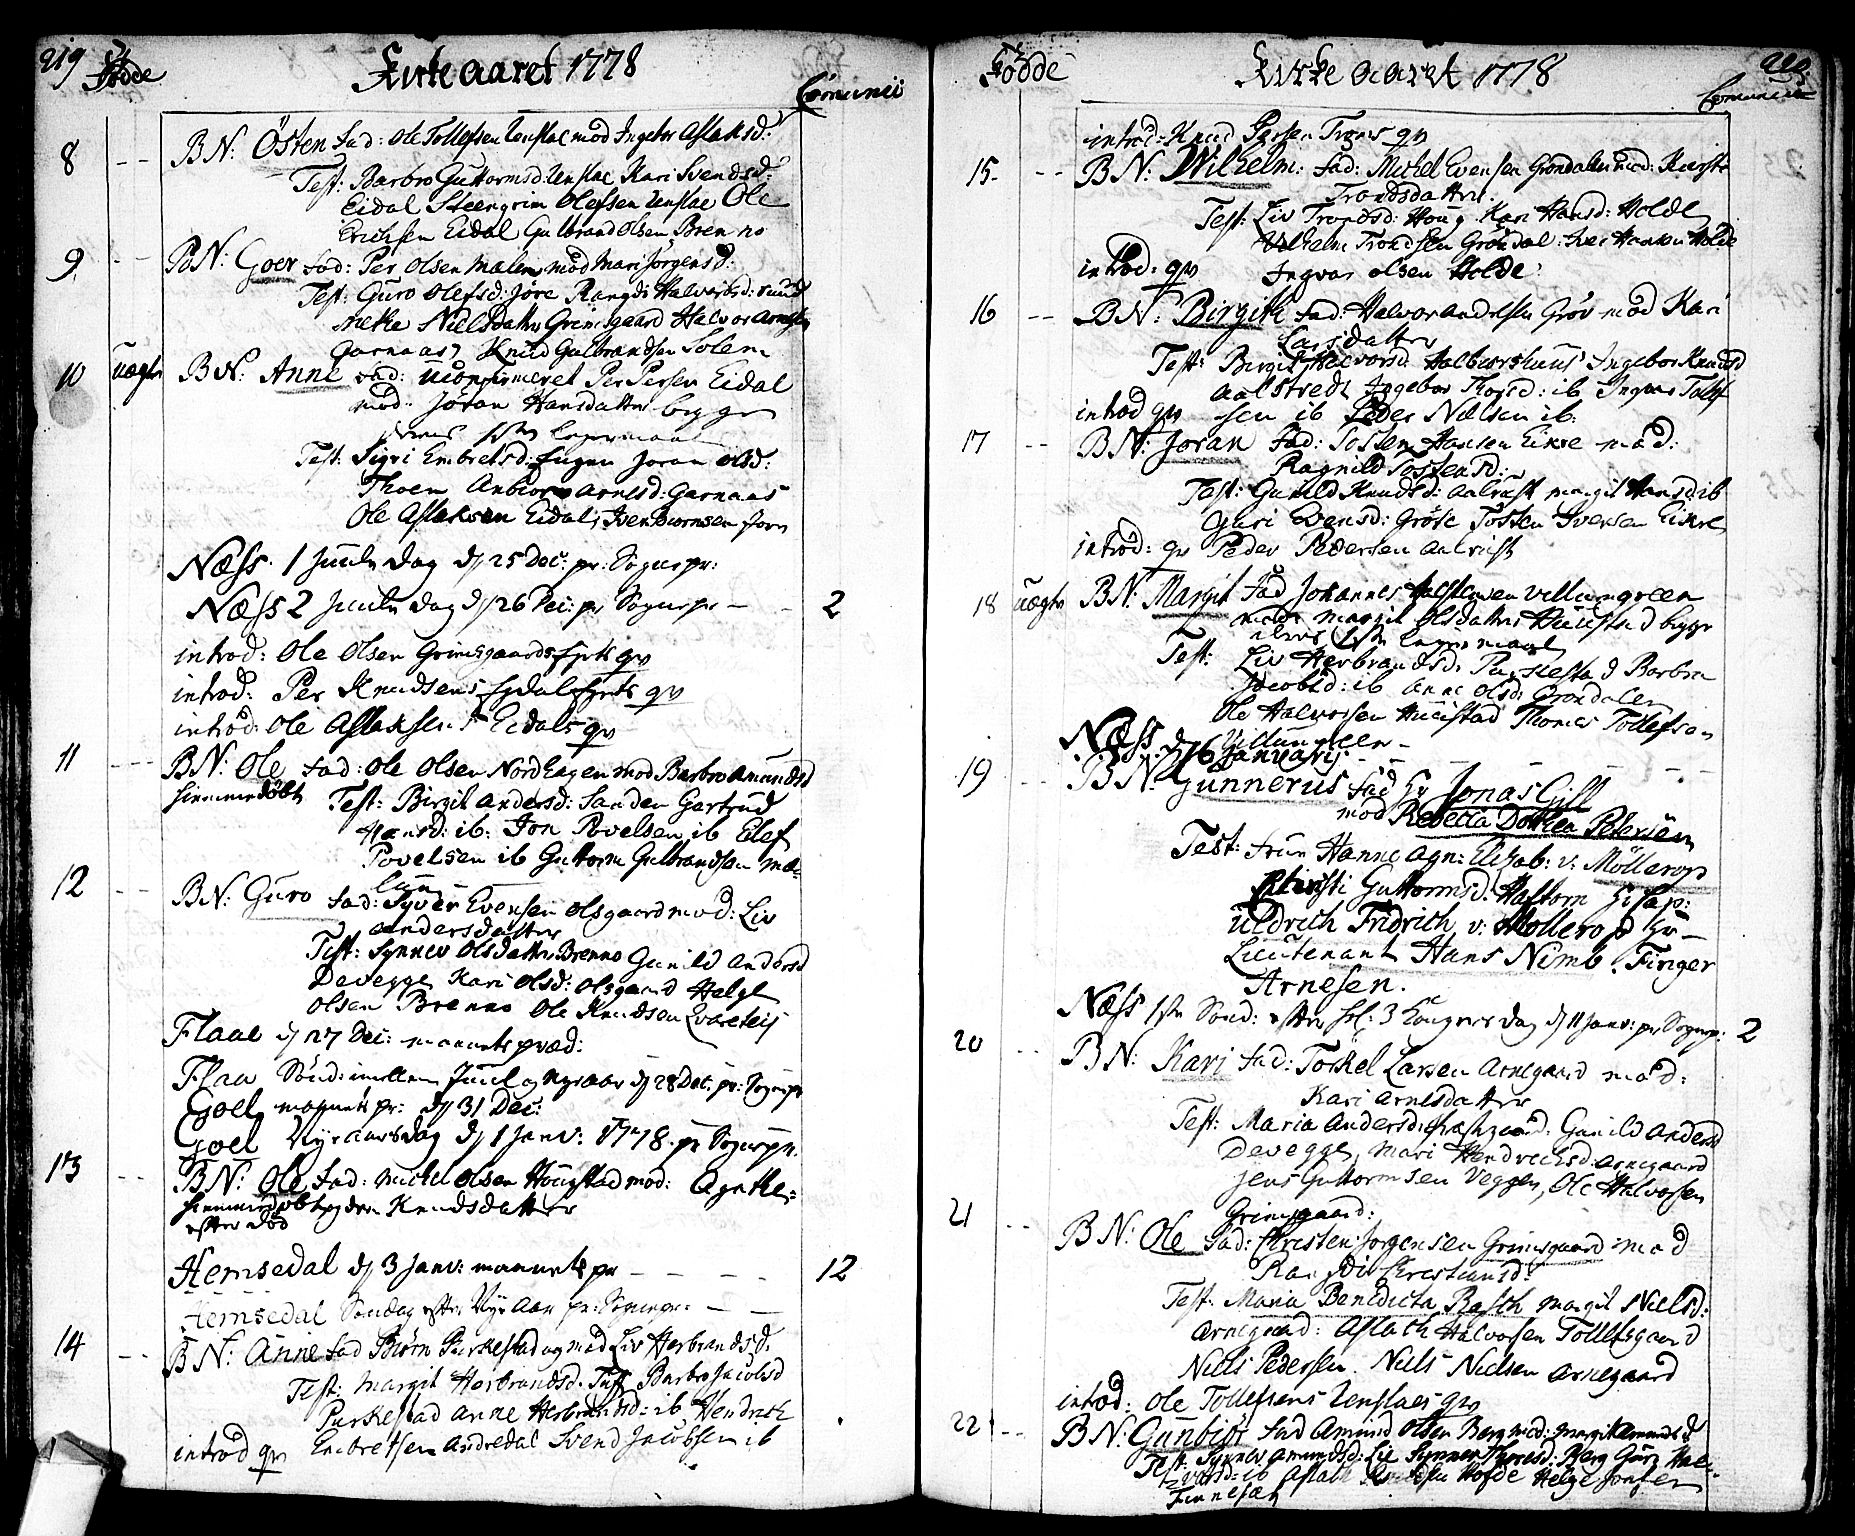 219 Fødde Kirke aaret 1778 Comunic
8 -- BN: Östen fad: Ole Tollefsen Ursdal mod Ingebor Aslaksd:
Test: Barbro Guttormsd: Kari Svendsd:
Eidal Steengrim Olefsen Ole
Erichsen Eidal Gulbrand Olsen Brenno
9 -- BN: Goer fad: Per Olsen Mælen mod Mari Jörgensd:
Test: Guro Olefsd: Jöre Rangdi Halvorsd: ruud
Nielsdatter Grimsgaard Halvor Arnesen
Garnaas, Knud Gulbrandsen Solem
10 uægte BN: Anne fad: Per Persen Eidal
mod: Jöran Hansdatter begge
deres 1ste lejermaal
Test: Sigri Embretsd: Joran Olsd:
Thoen Anbiör Arnesd: Garnaas
Ole Aslaksen Eidal, Iver Biörnsen
Næss. 1 Juule Dag d. 25 Dec: pr: Sognepr:
Næss 2 Juule dag d. 26 Dec: pr Sognepr - - 2
introd: Ole Olsen Grimsgaards qv
introd: Per Knudsens Eidal qv
introd: Ole Aslaksens Eidals qv
11 --- BN: Ole fad: Ole Olsen Nordhagen mod Barbro Amundsd
hiemmedöbt Test: Birgit Andersd: Sanden Gertrud
Hansd: ib: Jon Povelsen ib Elef
Povelsen ib Guttorm Gulbrandsen
12 -- BN: Guro fad: Syver Evensen Olsgaard mod: Liv
Andersdatter
Test: Synnev Olsdatter Brenno Gunild Andersd
Devegge Kari Olsd: Olsgaard Helge
Olsen Brenno Ole Knudsen
Flaae d. 27 Dec: mannets præd:
Flaa Sönd: imellem Juul og Nyeaar d. 28 Dec. pr: Sognepr
Goel mannets pr: d. 31 Dec:
Goel Nyeaarsdag d. 1 Janv: 1778. pr Sognepr.
13 -- BN: Ole fad: Michel Olsen Hougstad mod: Agathe
hiemmedöbt og Knudsdatter
efter död
Hemsedal d. 3 Janv: mannets pr - - - - 12
Hemsedal Söndag efter Nye Aar pr: Sognepr: - -
14 -- BN: Anne fad Biörn Purkestad og mod Liv Herbrandsd.
Test: Margit Herbrandsd. Tuf Barbro Jacobsd
Purkestad Anne Herbrandsd: ib Hendrich
introd qv Embretsen Svend Jacobsen ib
Födde Kirke aaret 1778 220 Comunic
introd: Knud Persen Trøms qv
15. -- BN: Wilhelm: fad: Michel Evensen Gröndalen mod: Kirsti
Trondsdatter.
Test: Liv Trondsd: Houg Kari Hansd: Holde
Wilhelm Trondsen Gröndal: Iver Hansen Holde
introd: qv Ingvar Olsen Holde
16 -- BN: Birgith fad: Halvor Andersen Gröv mod Kari
Larsdatter
Test: Birgit Halvorsd: Ingebor Knudsd
Ingebor Thorsd: ib Ingvar Tollef
introd qv sen ib Peder Nielsen ib:
17 -- BN: Joran fad: Tosten Hansen Eikre mod:
Ragnild Tostensd:
Test: Gunild Knudsd: Aalrust Margit Hansd ib
Guri Evensd: Gröse Tosten Iversen Eikre
introd: qv Peder Pedersen Aalrust
18 uægte BN: Margit fad Johannes Halstensen Villumgreen
mod: Margit Olsdatter Huustad begge
deres 1ste lejermaal
Test: Liv Herbrandsd: Purkestad Barbro
Jacobsd: ib Anne Olsd: Gröndalen
Ole Halvorsen Huustad Thomes Tollefsen
Villumgreen -
Næss. d. 6 Januarij - - - - -
19 -- BN: Gunnerus fad Hr Jonas Gill
mod Rebecca Dothea Petersen
Test: Frue Hanne Agn: Elisab: v: Möllerop
Kirsti Guttormsd: Haftorn Hr Cap:
Uldrich Fridrich v: Mollerop Hr -
Lieutenant Hans Nimb. Finger
Arnesen.
Næss 1ste Sönd: efter hel: 3 Kongers dag d. 11 Janv: pr Sognepr: 2
20 -- BN: Kari fad: Torkel Larsen Arnegaard mod:
Kari Arnesdatter
Test: Maria Andersd: Gunild Andersd
Devegge, Mari Hendrichsd: Arnegaard
Jens Guttormsen Veggen, Ole Halvorsen
Grimsgaard:
21 -- BN: Ole fad: Christen Jorgensen Grimsgaard mod
Rangdi Christiansd:
Test: Maria Benedicta Rasch Margit Nielsd:
Arnegaard: Aslach Halvorsen Tollefsgaard
Niels Pedersen. Niels Nielsen Arnegaard
introd: Ole Tollefsens qv
22 -- BN: Gunbiör fad Amund Olsen Berg mod: Margit Amundsd
Test: Synnev Amundsd: Lie Synnev Thoresd: Berg Guro Hal-
vorsd: ib Aslach Knudsen Hofde Helge
Finnesæt